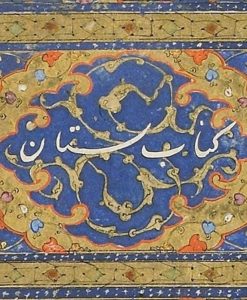 کتاب بستان